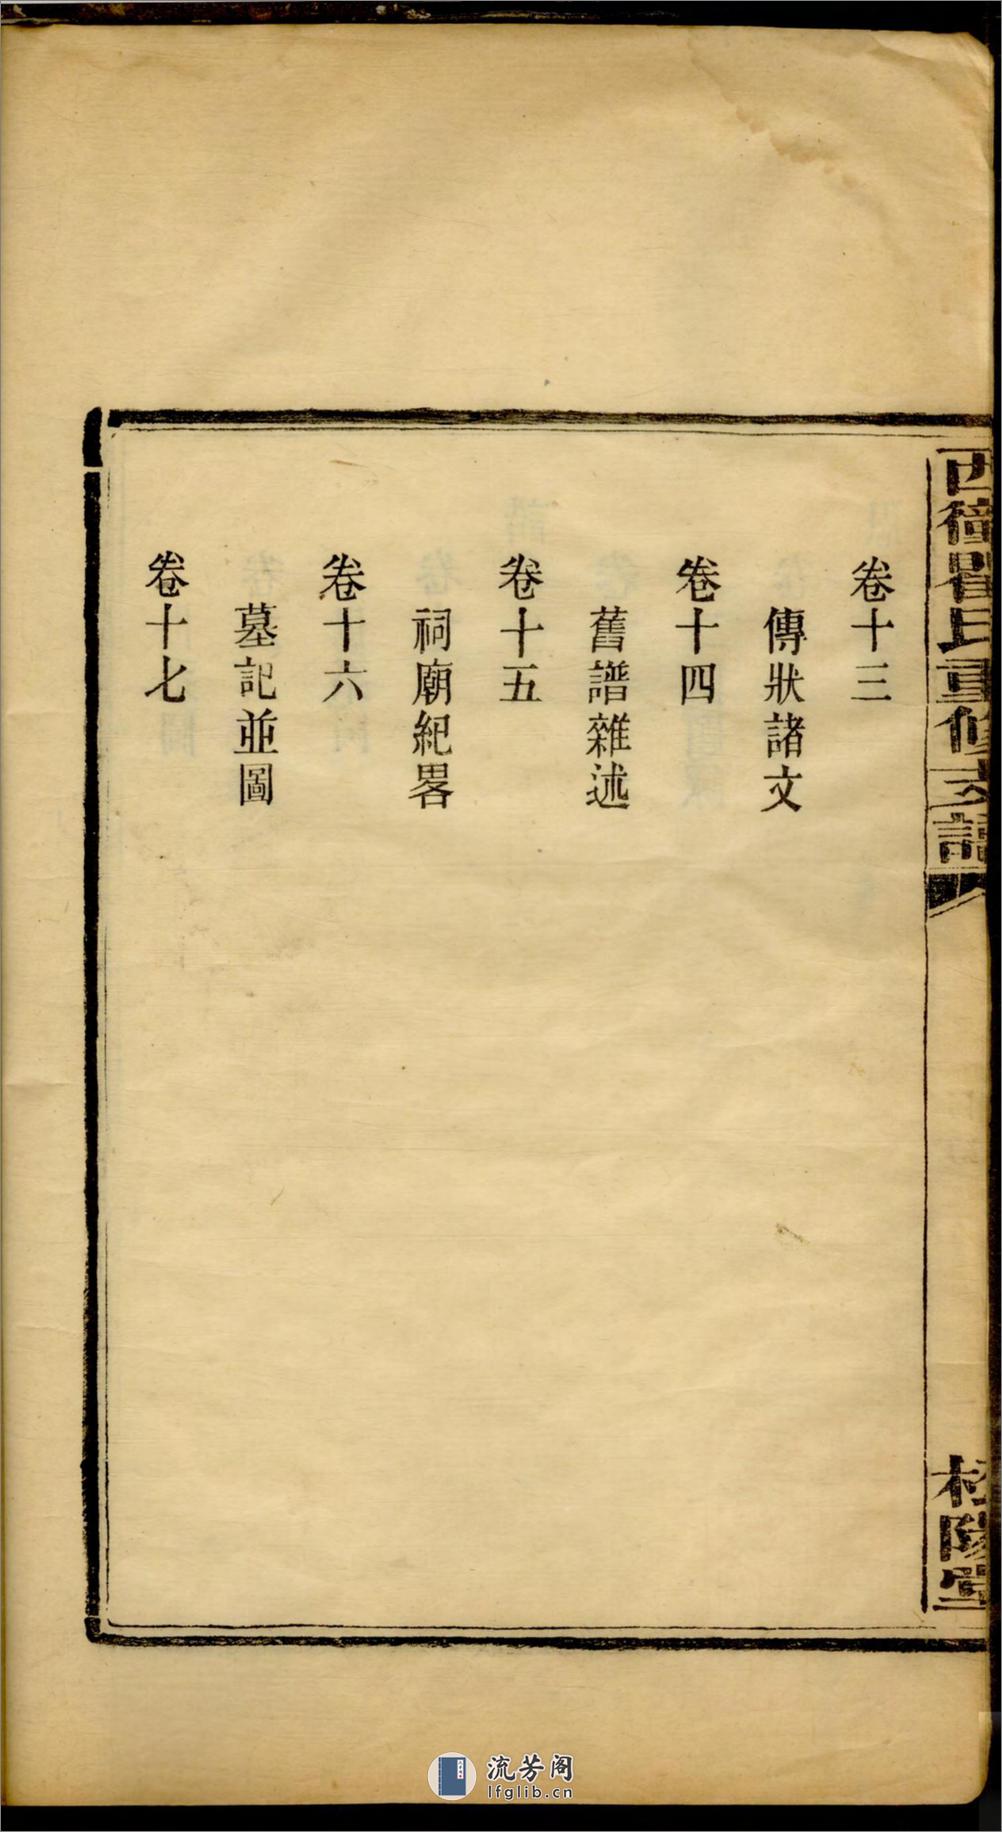 西衝瞿氏重修支譜
松陽堂
卷十三
傳狀諸文
卷十四
舊譜雜述
卷十五
祠廟紀畧
卷十六
墓記並圖
卷十七
流芳阁
lfglib.cn